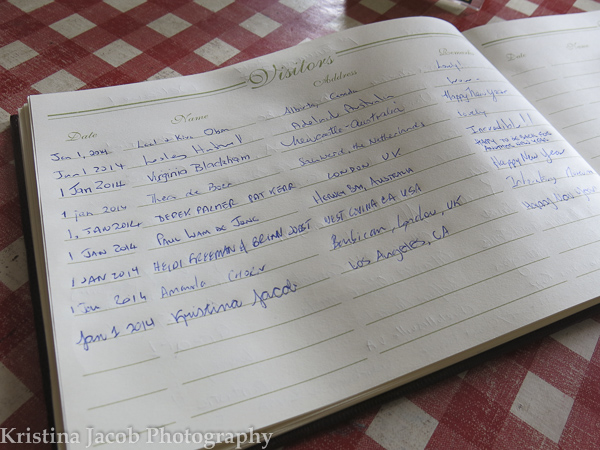 Visitors
Date Name Address Comments
Jan 1, 2014 Kim Alberta, Canada
Jan 1 2014 Lesley Adelaide Australia
1 Jan 2014 Virginia Bladeham Newcastle - Australia Happy New Year
1 Jan 2014 Theo de Boer The Netherlands lovely
1, JAN 2014 DEREK PALMER PAT KERR LONDON UK Incredible!!! HAPPY TO BE BACK FOR ANOTHER NEW YEAR
1 JAN 2014 PAUL WAM DE JONG HERVEY BAY, AUSTRALIA Happy New Year
1 JAN 2014 HEIDI FREEMAN & BRIAN JOBST WEST COVINA CA USA
1 Jan 2014 Amanda London, UK
Jan 1 2014 Kristina Jacob Los Angeles, CA Happy New Year
Date Name
Kristina Jacob Photography